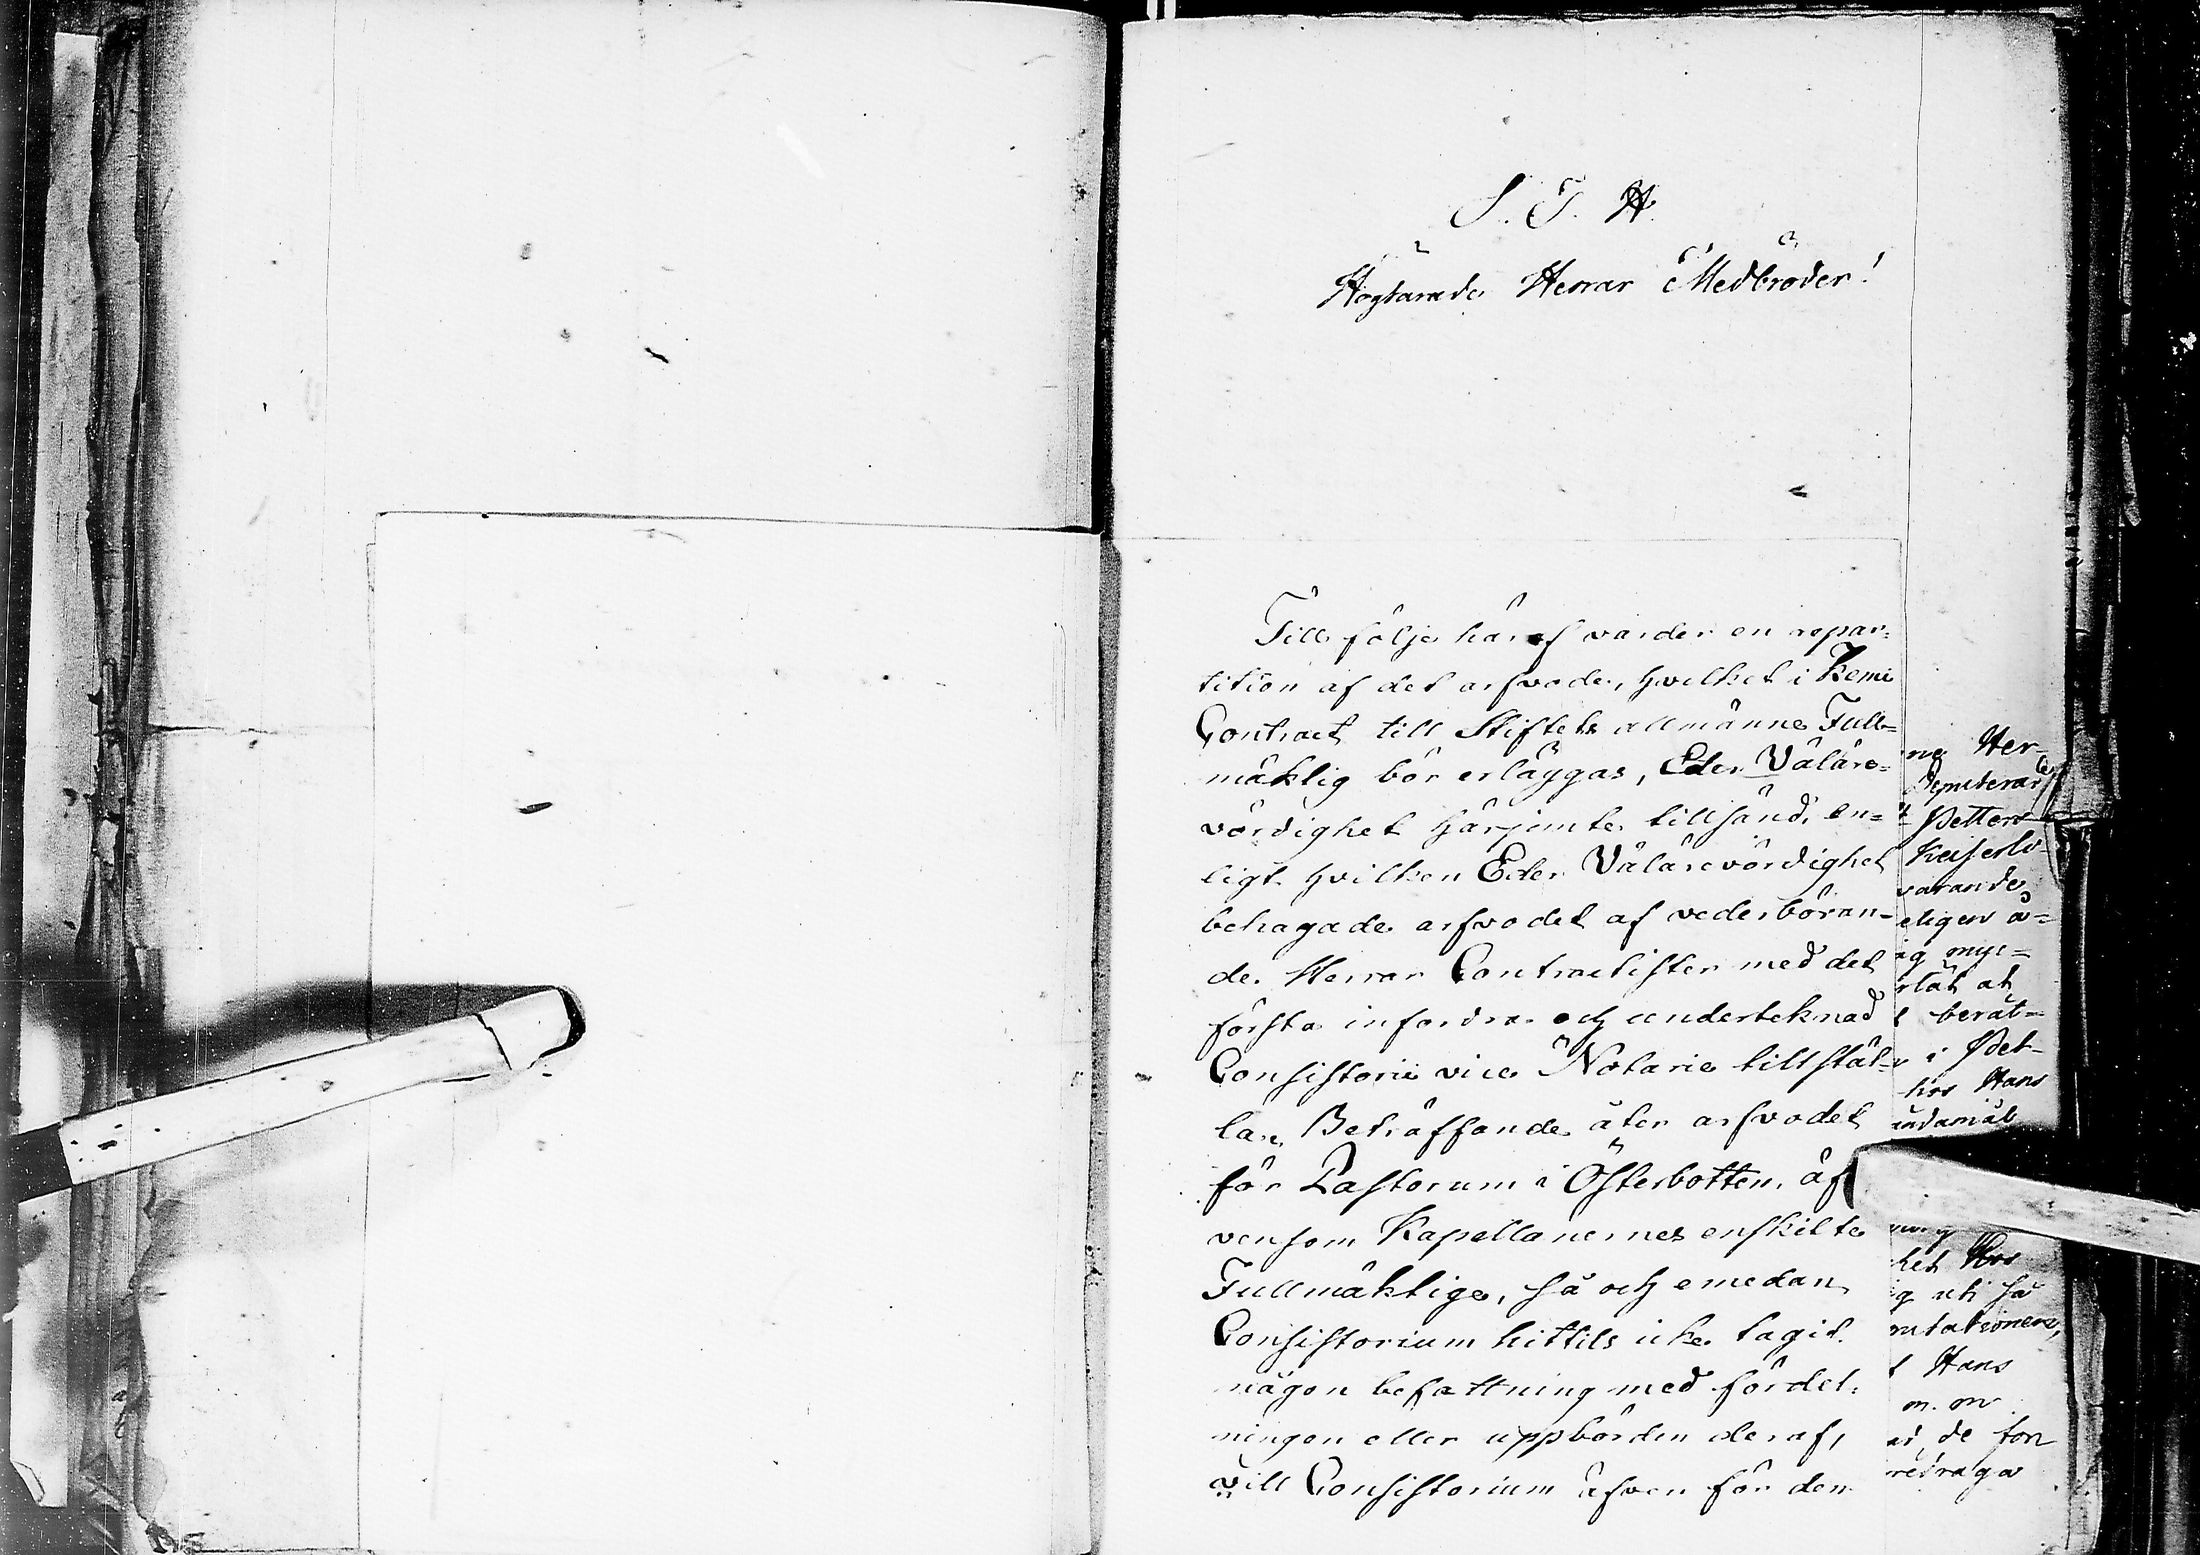 S. T. H.
Högtärade Herrar Medbröder!
Till följe häraf varder en repar-
tition af det arfvode, hvilket i Kemi
Contract till Stiftets allmänne Full-
mäktig bör erläggas, Eder Väläre-
vördighet härjemte tillsänd, en-
ligt hvilken Eder Välärevördighet
behagade arfvodet af vederböran-
de Herrar Contractister med det
första infordra och underteknad
Consistorii vice Notarie tillstäl-
la. Beträffande åter arfvodet
för Pastorum i Österbotten, äf
vensom Kapellanernes enskilte
Fullmäktige, så och emedan
Consistorium hittils icke tagit
någon befattning med fördel-
ningen eller uppbörden deraf,
vill Consistorium äfven för den
ne Her-
Deputerar
Petters
Keiserli-
varande
eligen å-
ig myc-
rlåt at
t berät-
i Pet-
hos Hans
ändamål
ning
ket Hos
g uti så
utationen,
t Hans
m. m.
de for
redraga